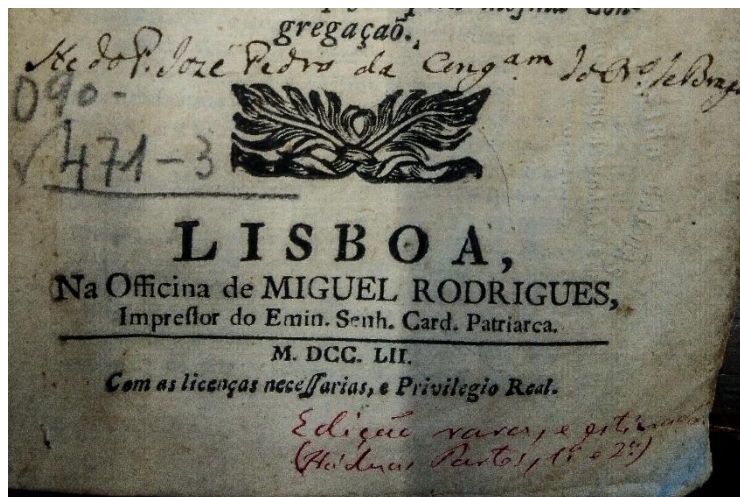 gregaçaõ.,
He do P. Joze Pedro da Cong.am do Or.o de Braga
090-
471-3
LISBOA,
Na Officina de MIGUEL RODRIGUES,
Impreſſor do Emin. Senh. Card. Patriarca.
M. DCC. LII.
Com as licenças neceſſarias, e Privilegio Real.
Edição rara, e estimada
(Há duas Partes, 1ª e 2ª)